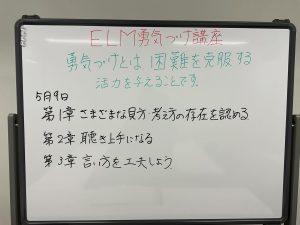 ELM勇気づけ講座
勇気づけとは 困難を克服する
活力を与えることです。
5月9日
第1章 さまざまな見方・考え方の存在を認める
第2章 聴き上手になる
第3章 言い方を工夫しよう